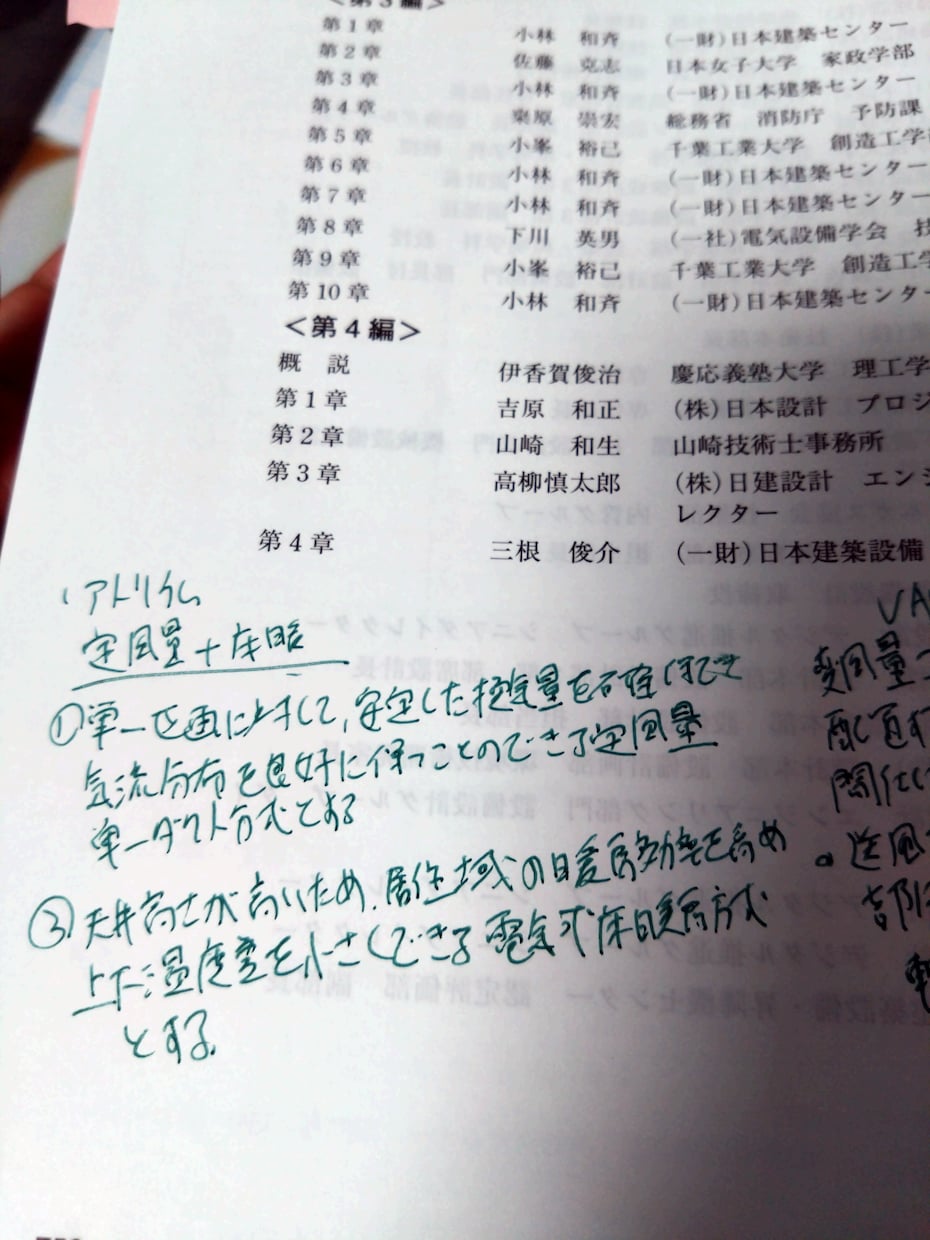 <第3編>
第1章 小林 和斉 (一財)日本建築センター
第2章 佐藤 克志 日本女子大学 家政学部
第3章 小林 和斉 (一財)日本建築センター
第4章 桒原 崇宏 総務省 消防庁 予防課
第5章 小峯 裕己 千葉工業大学 創造工学
第6章 小林 和斉 (一財)日本建築センター
第7章 小林 和斉 (一財)日本建築センター
第8章 下川 英男 (一社)電気設備学会 技
第9章 小峯 裕己 千葉工業大学 創造工学
第10章 小林 和斉 (一財)日本建築センター
<第4編>
概 説 伊香賀俊治 慶応義塾大学 理工学
第1章 吉原 和正 (株)日本設計 プロジ
第2章 山崎 和生 山崎技術士事務所
第3章 高柳慎太郎 (株)日建設計 エンジ
レクター
第4章 三根 俊介 (一財)日本建築設備
アトリウム
定風量+床暖
①単一区画に対して、安定した換気量を確保でき
気流分布を良好に保つことのできる定風量
単一ダクト方式とする
②天井高さが高いため、居住域の暖房効率を高め
上下温度差を小さくできる電気式床暖房方式
とする。
VA
変風量
配
送風